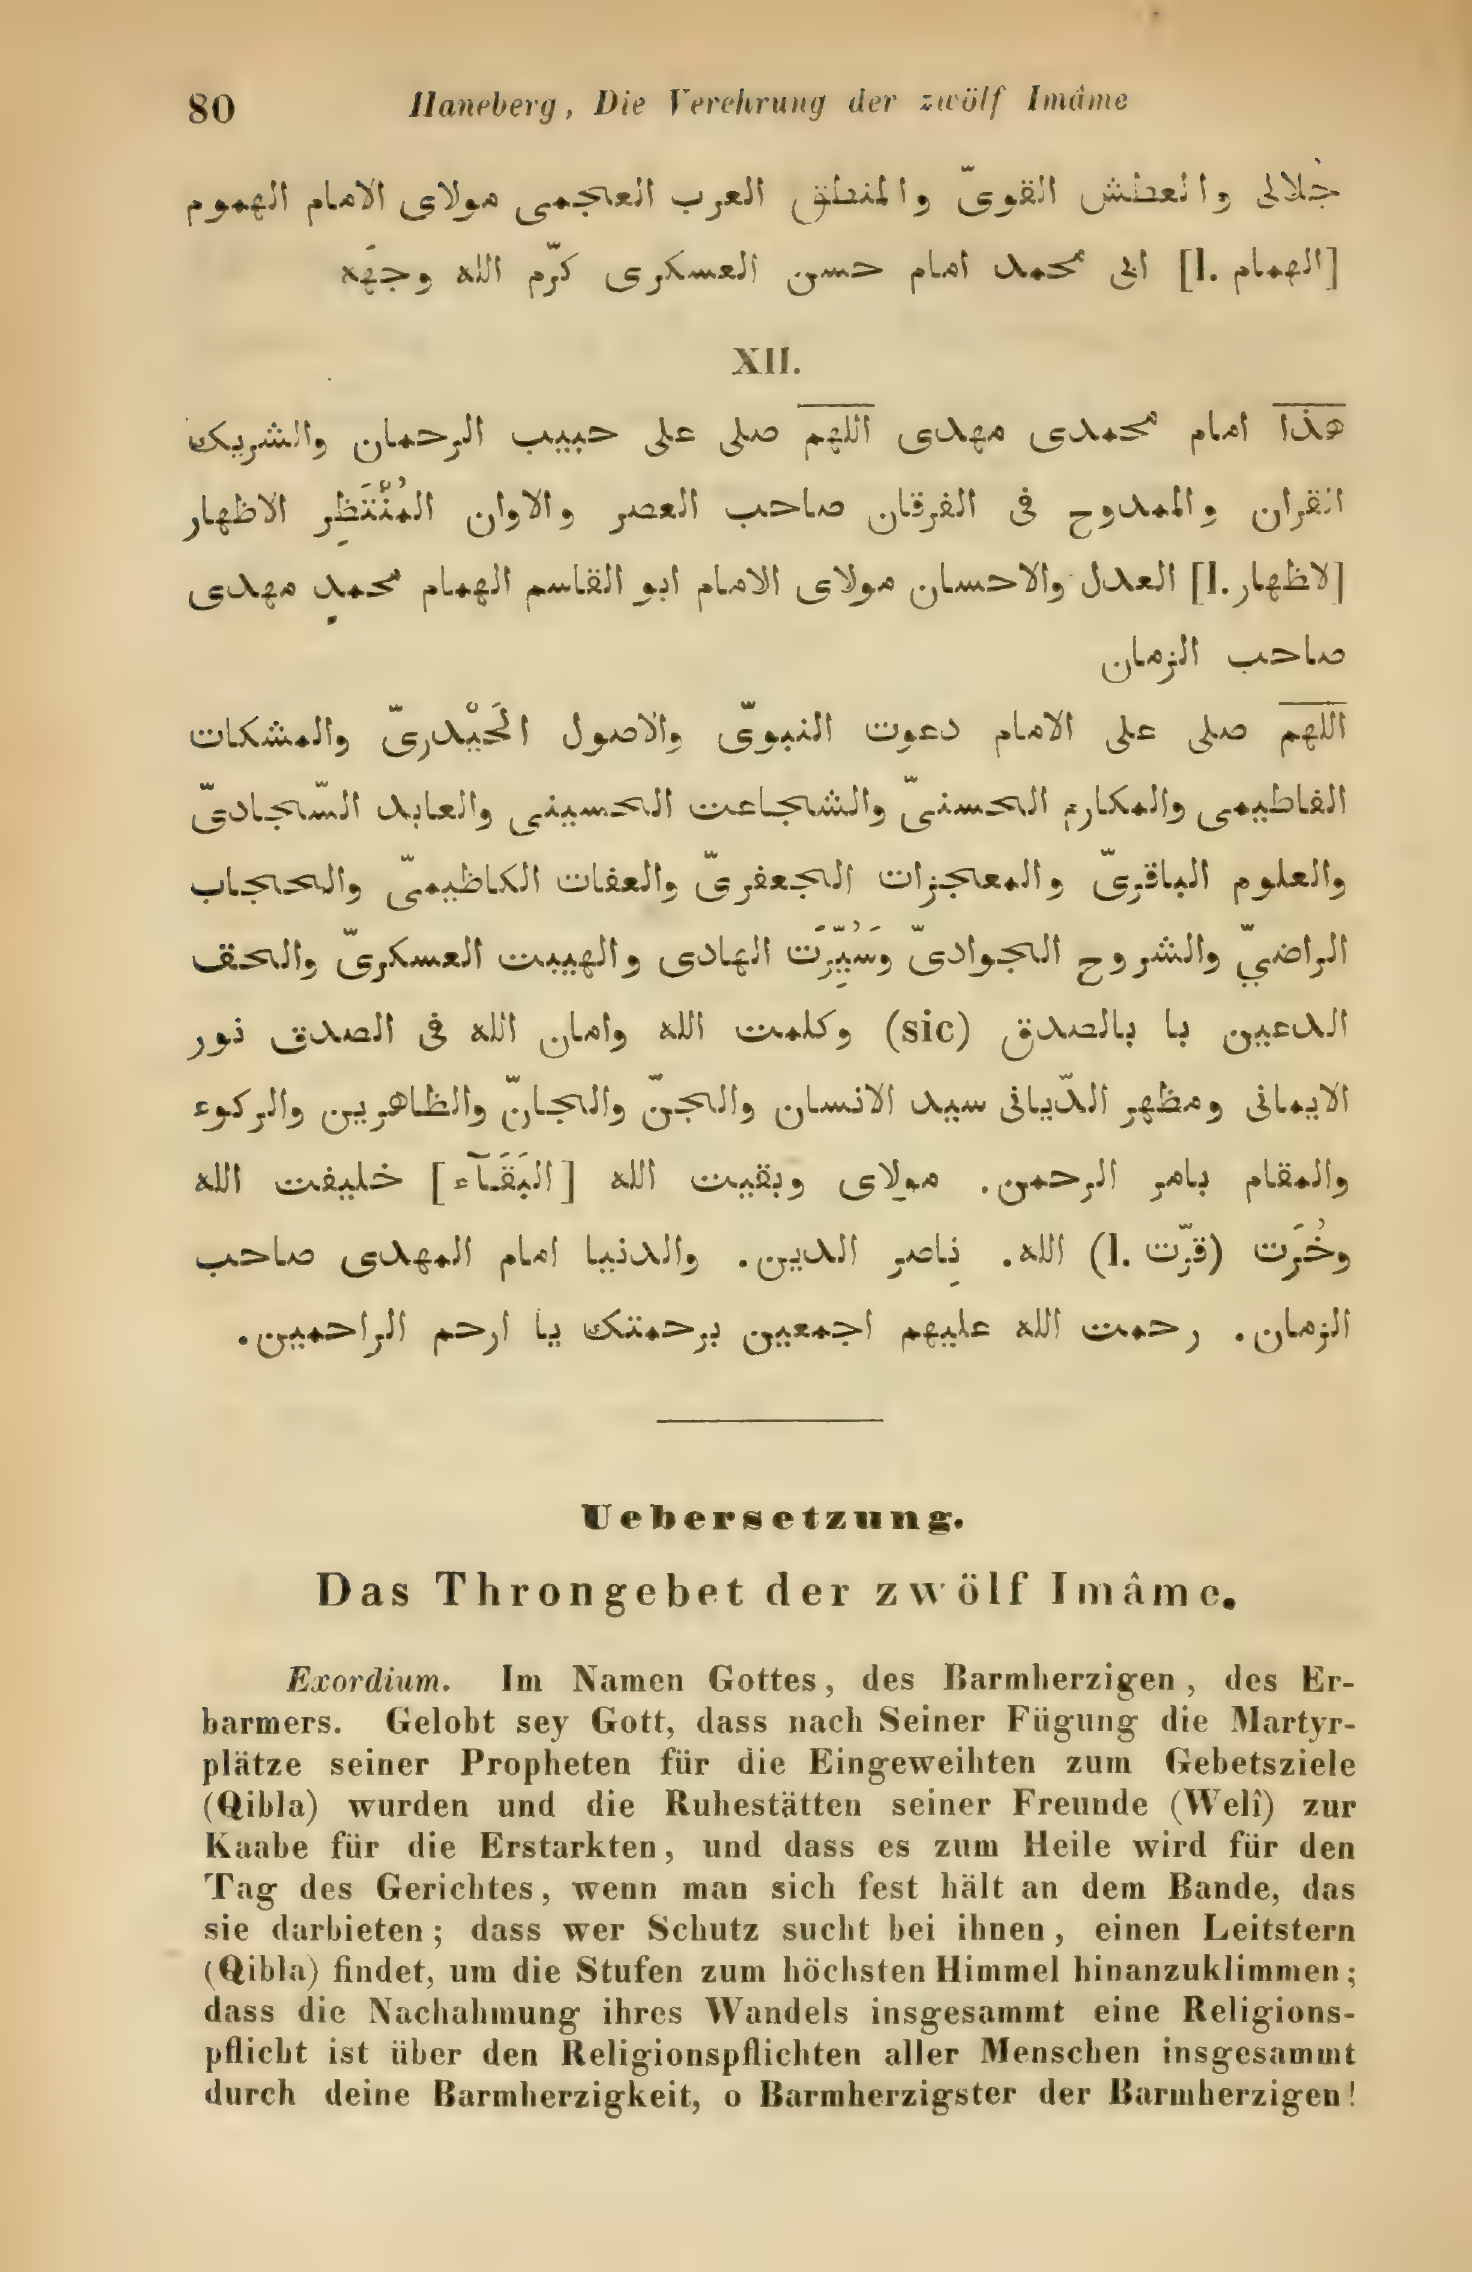 80 Haneberg, Die Verehrung der zwölf Imâme
جلالى والعطش القوىّ والمنطق العرب العجمى مولاى الامام الهموم
[الهمام .l] ابى محمد امام حسن العسكرى كرّم الله وجهَه
XII.
هذا امام محمدى مهدى اللهم صلى على حبيب الرحمان والشريك
القران والممدوح فى الفرقان صاحب العصر والاوان المُنَّتَظِر الاظهار
[لاظهار .l] العدل والاحسان مولاى الامام ابو القاسم الهمام محمدٍ مهدى
صاحب الزمان
اللهم صلى على الامام دعوت النبوىّ والاصول الَحَيْدرىّ والمشكات
الفاطيمى والمكارم الحسنىّ والشجاعت الحسينى والعابد السّجادىّ
والعلوم الباقرىّ والمعجزات الجعفرىّ والعفات الكاظيمىّ والحجاب
الراضيّ والشروح الجوادىّ وَسُيِّرَت الهادى والهيبت العسكرىّ والحق
الدعين با بالصدق (sic) وكلمت الله وامان الله فى الصدق نور
الايمانى ومظهر الدّيانى سيد الانسان والجنّ والجانّ والظاهرين والركوء
والمقام بامر الرحمن. مولاى وبقيت الله [البَقَآء] خليفت الله
وخُرَت (قرّت .l) الله. نِاصر الدين. والدنيا امام المهدى صاحب
الزمان. رحمت الله عليهم اجمعين برحمتك يا ارحم الراحمين.
Uebersetzung.
Das Throngebet der zwölf Imâme.
Exordium. Im Namen Gottes, des Barmherzigen, des Er-
barmers. Gelobt sey Gott, dass nach Seiner Fügung die Martyr-
plätze seiner Propheten für die Eingeweihten zum Gebetsziele
(Qibla) wurden und die Ruhestätten seiner Freunde (Welî) zur
Kaabe für die Erstarkten, und dass es zum Heile wird für den
Tag des Gerichtes, wenn man sich fest hält an dem Bande, das
sie darbieten; dass wer Schutz sucht bei ihnen, einen Leitstern
(Qibla) findet, um die Stufen zum höchsten Himmel hinanzuklimmen;
dass die Nachahmung ihres Wandels insgesammt eine Religions-
pflicht ist über den Religionspflichten aller Menschen insgesammt
durch deine Barmherzigkeit, o Barmherzigster der Barmherzigen!